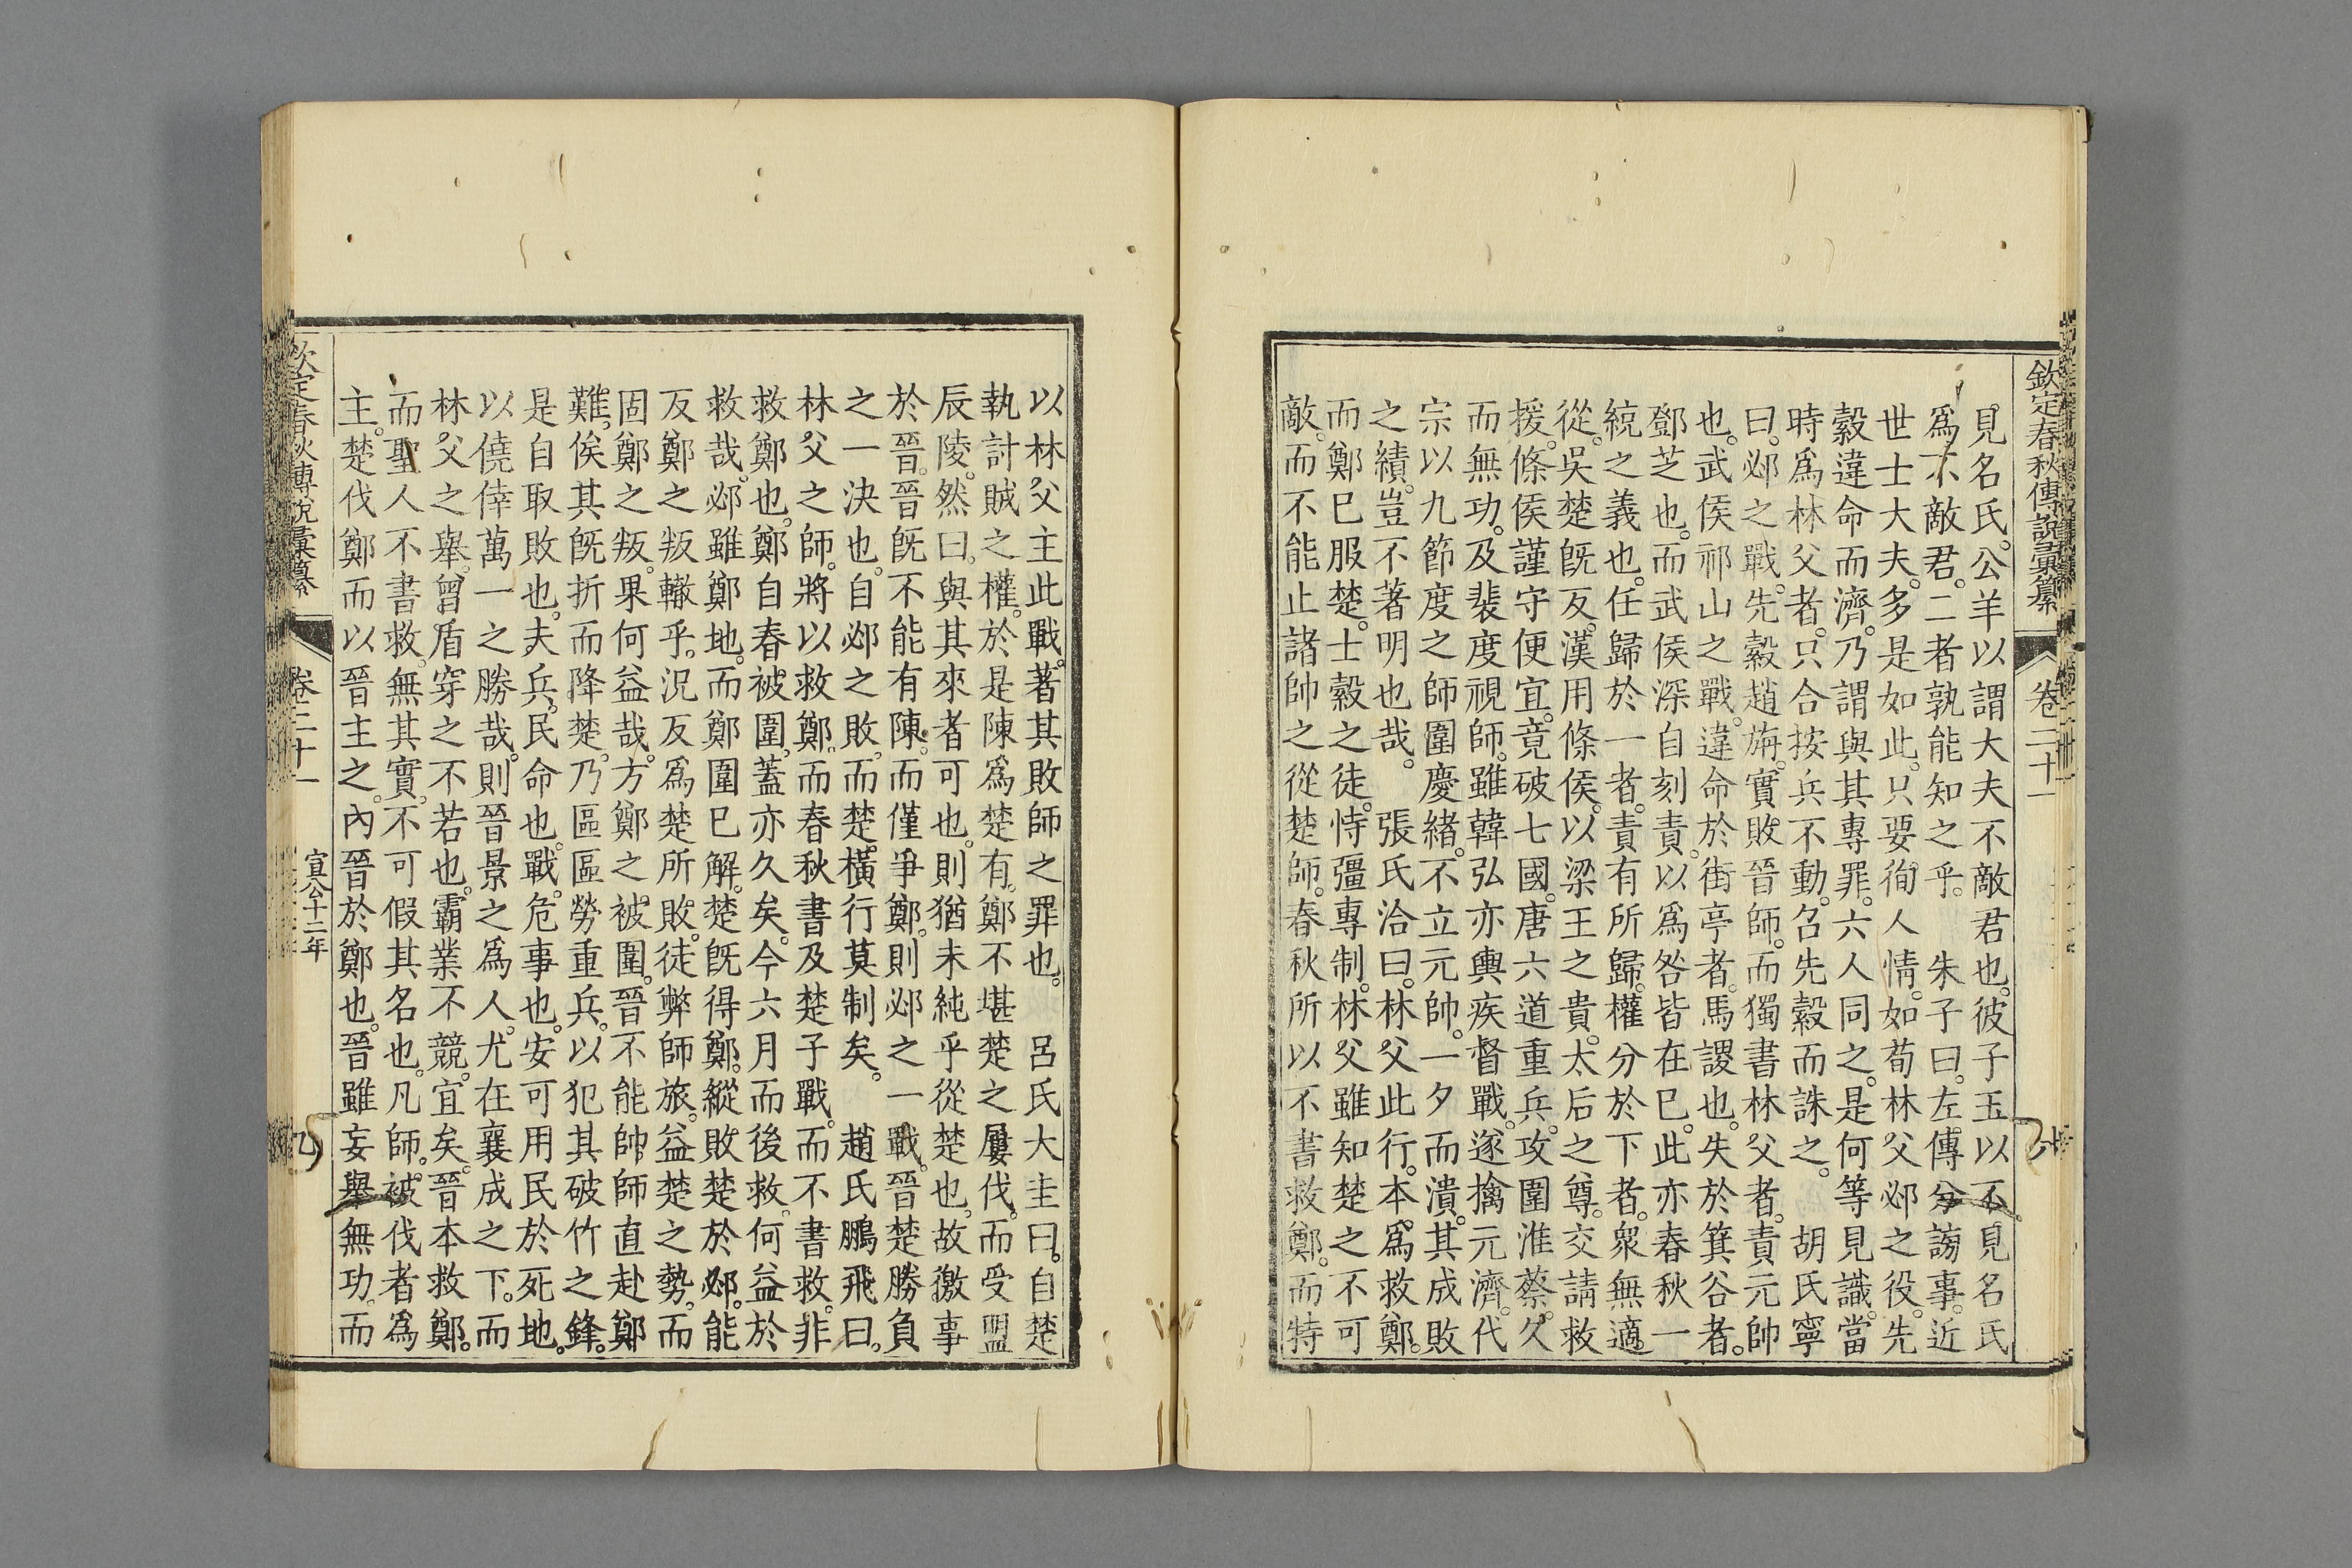 欽定春秋傳說彙纂 卷二十一
見名氏。公羊以謂大夫不敵君也。彼子玉以不見名氏
爲不敵君。二者孰能知之乎。 朱子曰。左傳分謗事。近
世士大夫。多是如此。只要徇人情。如荀林父邲之役。先
縠違命而濟。乃謂與其專罪。六人同之。是何等見識。當
時爲林父者。只合按兵不動。召先縠而誅之。 胡氏寧
曰。邲之戰。先縠趙旃。實敗晉師。而獨書林父者。責元帥
也。武侯祁山之戰。違命於街亭者。馬謖也。失於箕谷者。
鄧芝也。而武侯深自刻責。以爲咎皆在已。此亦春秋一
統之義也。任歸於一者。責有所歸。權分於下者。衆無適
從。吳楚旣反。漢用條侯。以梁王之貴。太后之尊。交請救
援。條侯謹守便宜。竟破七國。唐六道重兵。攻圍淮蔡。久
而無功。及裴度視師。雖韓弘亦輿疾督戰。遂擒元濟。代
宗以九節度之師圍慶緒。不立元帥。一夕而潰。其成敗
之績。豈不著明也哉。 張氏洽曰。林父此行。本爲救鄭。
而鄭巳服楚。士縠之徒。恃彊專制。林父雖知楚之不可
敵。而不能止諸帥之從楚師。春秋所以不書救鄭。而特
以林父主此戰。著其敗師之罪也。 呂氏大圭曰。自楚
執討賊之權。於是陳爲楚有。鄭不堪楚之屢伐。而受盟
辰陵。然曰。與其來者可也。則猶未純乎從楚也。故徼事
於晉。晉旣不能有陳。而僅爭鄭。則邲之一戰。晉楚勝負
之一決也。自邲之敗。而楚橫行莫制矣。 趙氏鵬飛曰。
林父之師。將以救鄭。而春秋書及楚子戰。而不書救。非
救鄭也。鄭自春被圍。蓋亦久矣。今六月而後救。何益於
救哉。邲雖鄭地。而鄭圍巳解。楚旣得鄭。縱敗楚於邲。能
反鄭之叛轍乎。況反爲楚所敗。徒弊師旅。益楚之勢。而
固鄭之叛。果何益哉。方鄭之被圍。晉不能帥師直赴鄭
難。俟其旣折而降楚。乃區區勞重兵。以犯其破竹之鋒。
是自取敗也。夫兵。民命也。戰。危事也。安可用民於死地。
以僥倖萬一之勝哉。則晉景之爲人。尤在襄成之下。而
林父之舉。曾盾穿之不若也。霸業不競。宜矣。晉本救鄭。
而聖人不書救。無其實。不可假其名也。凡師。被伐者爲
主。楚伐鄭而以晉主之。內晉於鄭也。晉雖妄舉無功。而
欽定春秋傳說彙纂 卷二十一 宣公十二年